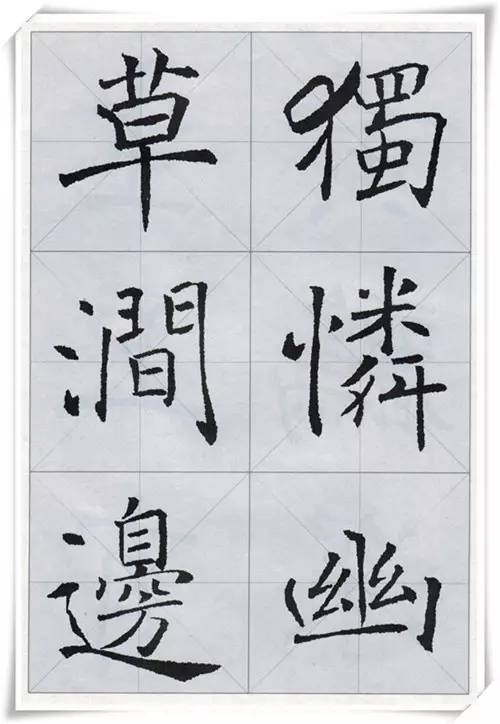 獨憐幽
草澗邊